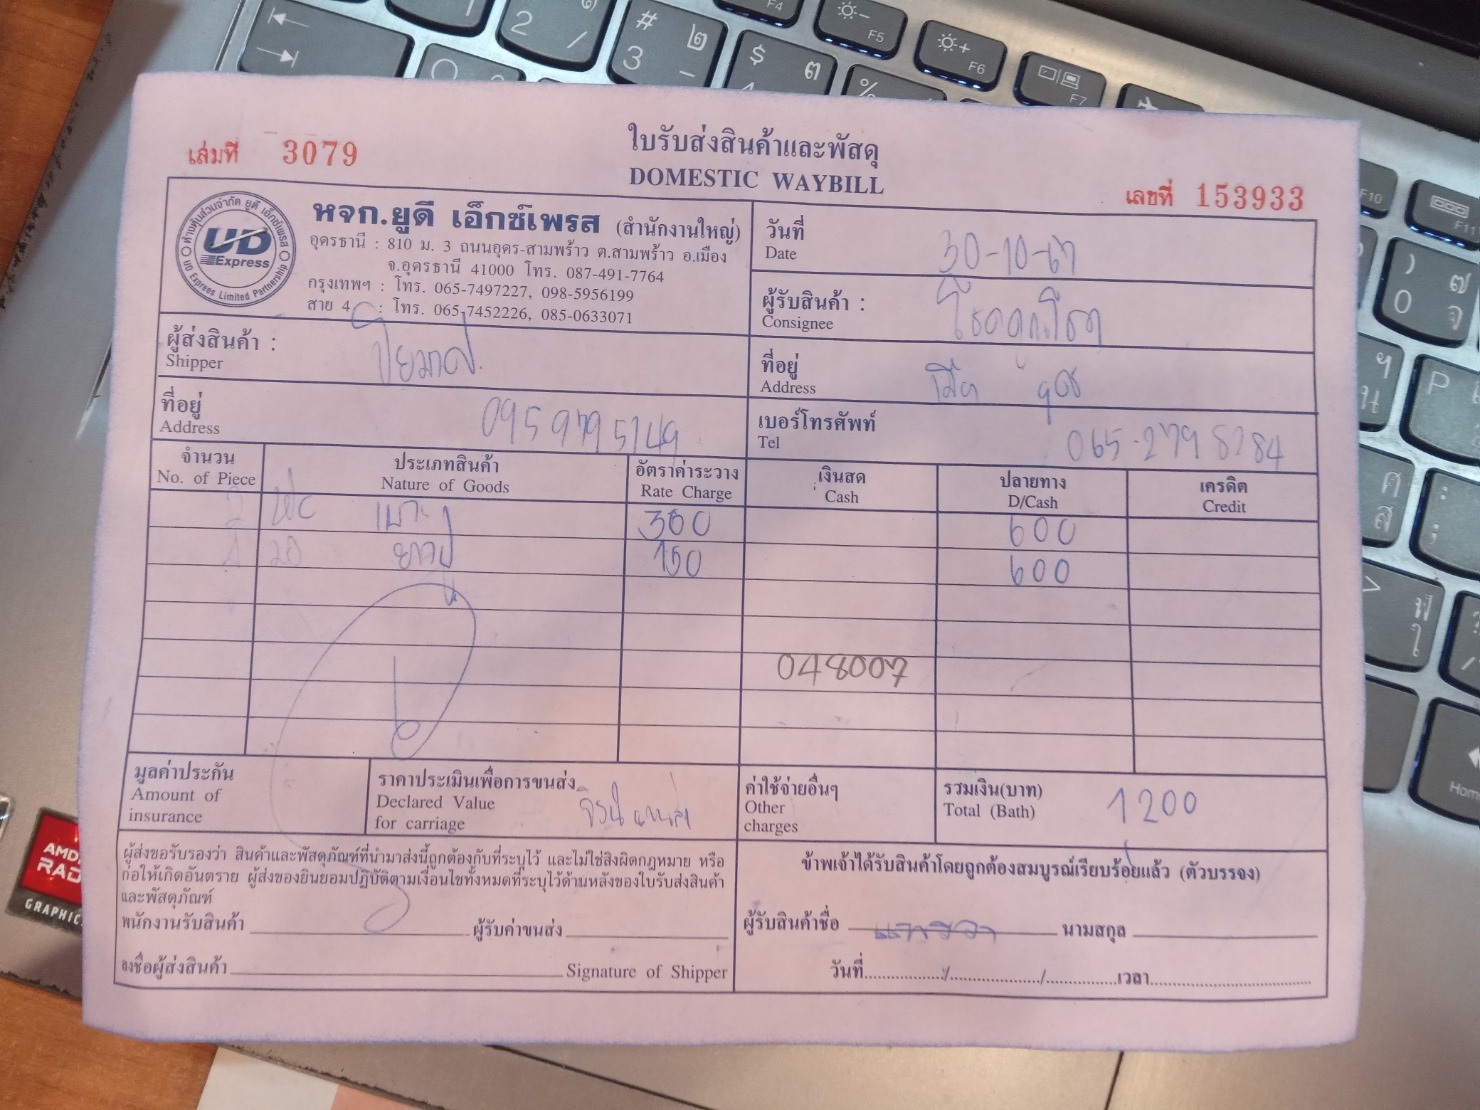 ใบรับส่งสินค้าและพัสดุ
เล่มที่ 3079
DOMESTIC WAYBILL
เลขที่ 153933
หจก.ยูดี เอ็กซ์เพรส (สำนักงานใหญ่)
อุดรธานี : 810 ม. 3 ถนนอุดร-สามพร้าว ต.สามพร้าว อ.เมือง
จ.อุดรธานี 41000 โทร. 087-491-7764
กรุงเทพฯ : โทร. 065-7497227, 098-5956199
สาย 4 : โทร. 065-7452226, 085-0633071
ห้างหุ้นส่วนจำกัด ยูดี เอ็กซ์เพรส
UD Express
UD Express Limited Partnership
วันที่ 30-10-67
Date
ผู้รับสินค้า :
Consignee
ผู้ส่งสินค้า : ปิยมาศ
Shipper
ที่อยู่
Address
ที่อยู่ 0959795149
Address
เบอร์โทรศัพท์
Tel 065-279 8284
จำนวน ประเภทสินค้า อัตราค่าระวาง เงินสด ปลายทาง เครดิต
No. of Piece Nature of Goods Rate Charge Cash D/Cash Credit
2 เบาะ 300 600
4 150 600
048007
มูลค่าประกัน ราคาประเมินเพื่อการขนส่ง ค่าใช้จ่ายอื่นๆ รวมเงิน(บาท) 1200
Amount of Declared Value Other Total (Bath)
insurance for carriage charges
ผู้ส่งขอรับรองว่า สินค้าและพัสดุภัณฑ์ที่นำมาส่งนี้ถูกต้องกับที่ระบุไว้ และไม่ใช่สิ่งผิดกฎหมาย หรือ
ก่อให้เกิดอันตราย ผู้ส่งของยินยอมปฏิบัติตามเงื่อนไขทั้งหมดที่ระบุไว้ด้านหลังของใบรับส่งสินค้า
และพัสดุภัณฑ์
พนักงานรับสินค้า ผู้รับค่าขนส่ง
ลงชื่อผู้ส่งสินค้า Signature of Shipper
ข้าพเจ้าได้รับสินค้าโดยถูกต้องสมบูรณ์เรียบร้อยแล้ว (ตัวบรรจง)
ผู้รับสินค้าชื่อ นามสกุล
วันที่ / / เวลา